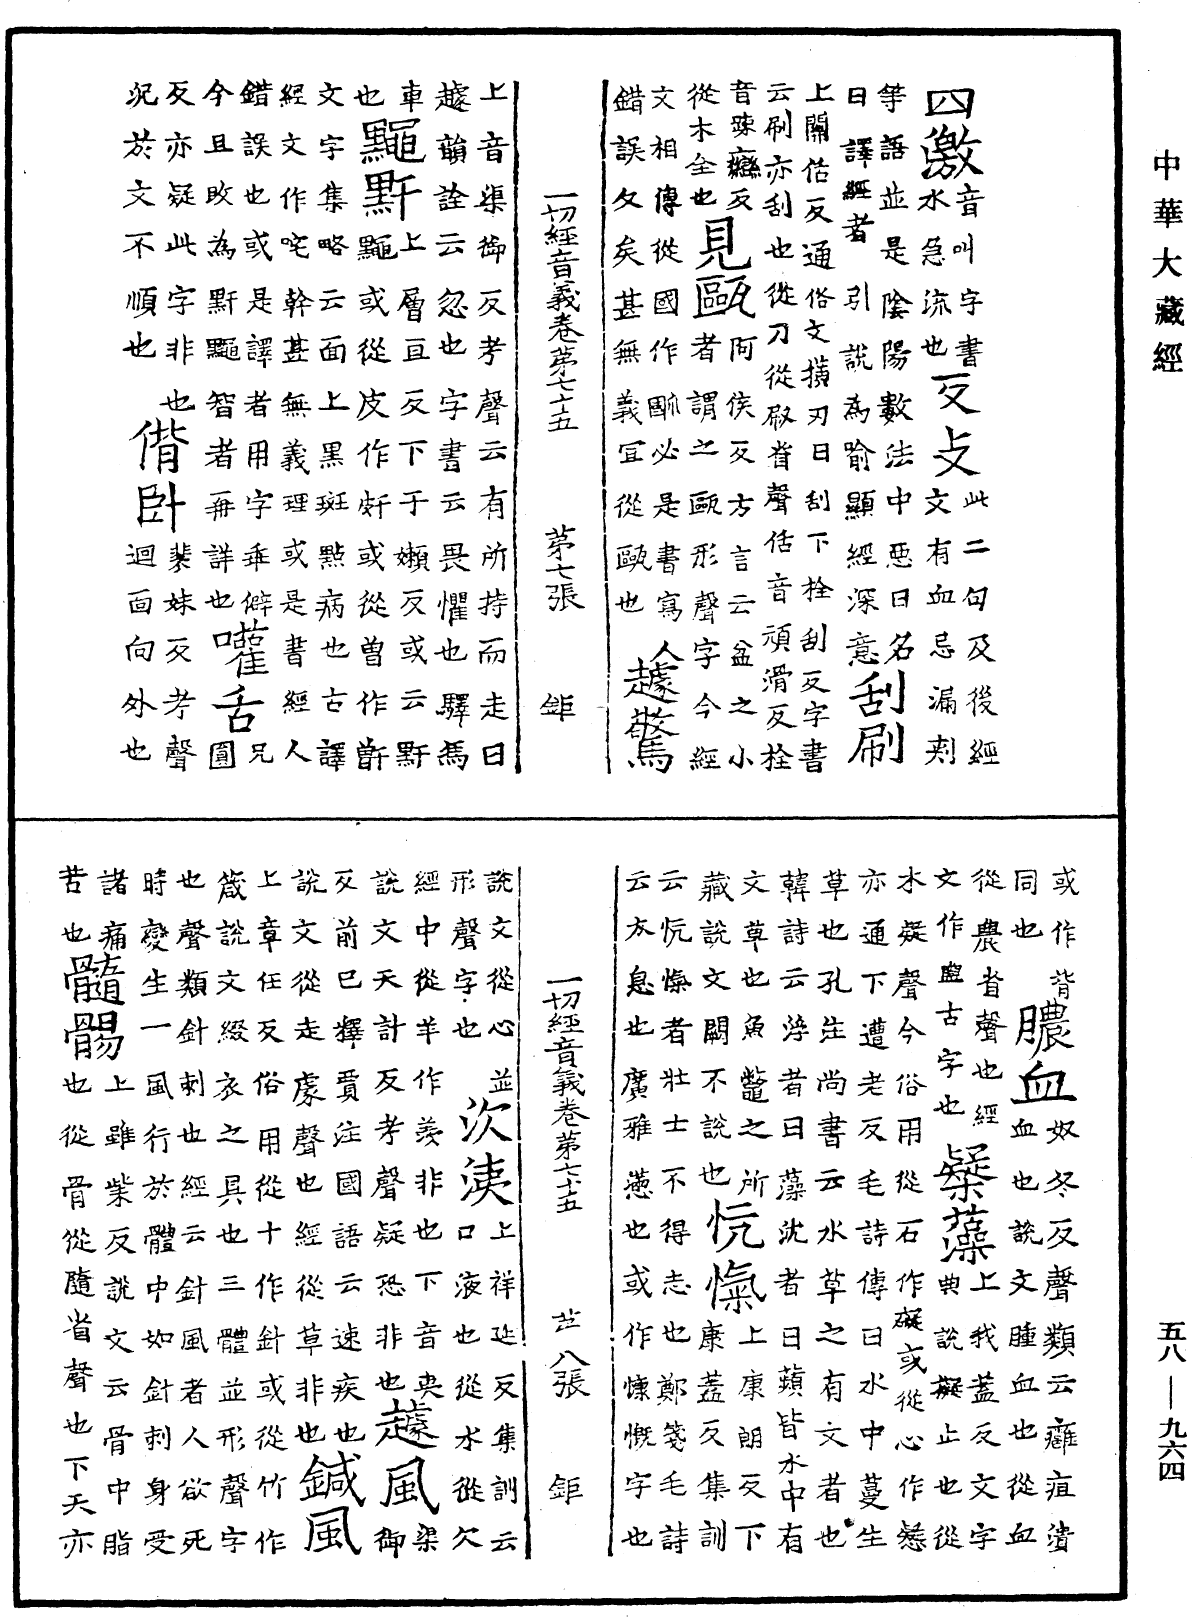 中華大藏經
四激音叫字書
水急流也反攴此二句及後經
文有血忌漏刺
等語並是陰陽數法中惡日名
曰譯經者引說為喻顯經深意刮刷
上關佸反通俗文橫刃曰刮下栓刮反字書
云刷亦刮也從刀從㕞省聲佸音頑滑反栓
音踈反
從木全也見甌阿侯反方言云盆之小
者謂之甌形聲字今經
文相傳從國作必是書寫人
錯誤久矣甚無義宜從甌也遽驚
一切經音義卷第七十五 第七張 鉅
上音渠御反考聲云有所持而走曰
遽韻詮云忽也字書云畏懼也驛馬
車
也䵴䵟上層亘反下于嬾反或云䵟
䵴或從皮作皯或從曾作
文字集略云面上黑斑點病也古譯
經文作咤幹甚無義理或是書經人
錯誤也或是譯者用字乖僻
今且改為䵟䵴智者再詳也嚾舌兄
圓
反亦疑此字非也
況於文不順也偝臥裴妹反考聲
迴面向外也
或作背
同也膿血奴冬反聲類云癰疽潰
血也說文腫血也從血
從農省聲也經
文作盥古字也礙藻上我蓋反文字
典說礙止也從
木疑聲今俗用從石作礙或從心作懝
亦通下遭老反毛詩傳曰水中蔓生
草也孔注尚書云水草之有文者也
韓詩云浮者曰藻沈者曰蘋皆水中有
文草也魚鼈之所
藏說文闕不說也忼愾上康朗反下
康蓋反集訓
云忼愾者壯士不得志也鄭箋毛詩
云太息也廣雅懣也或作慷慨字也
一切經音義卷第七十五 第八張 鉅
說文從心並
形聲字也㳄洟上祥延反集訓云
口液也從水從欠
經中從羊作羨非也下音
說文天計反考聲疑恐非也遽風渠
御
反前已擇賈注國語云速疾也
說文從走豦聲也經從草非也鍼風
上章任反俗用從十作針或從竹作
箴說文綴衣之具也三體並形聲字
也聲類針刺也經云針風者人欲死
時變生一風行於體中如針刺身受
諸痛
苦也髓䯜上雖紫反說文云骨中脂
也從骨從隨省聲也下天亦
五八—九六四